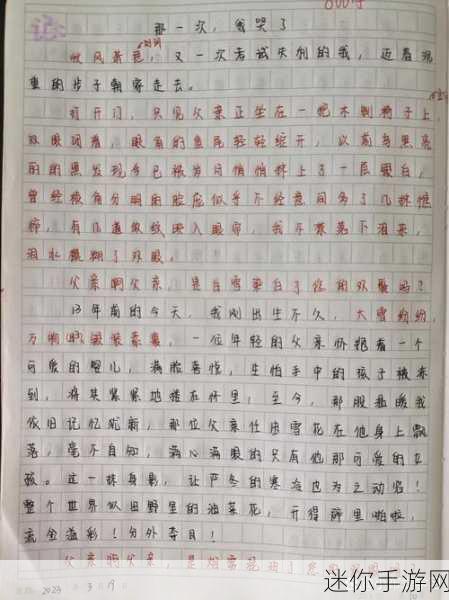 那一次，我哭了
秋风萧瑟，又一次考试失利的我，迈着沉
重的步子朝家走去。
打开门，只见父亲正坐在一把木制椅子上，
双眼闭着，眼角的鱼尾轻轻绽开，以前乌黑亮
丽的黑发现今已被岁月悄悄抹上了一层霜白，
曾经棱角分明的脸庞似乎不经意间多了几抹憔
悴，有几道皱纹映入眼帘，我不禁落下泪来，
泪水模糊了双眼。
父亲啊父亲，是白雪染白了你的双鬓吗？
13年前的今天，我刚出生不久，大雪纷纷，
万物银装素裹，一位年轻的父亲怀抱着一个
可爱的婴儿，满脸喜悦，生怕手中的孩子被冻
到，将其紧紧地搂在怀里，至今，那股温暖我
依旧记忆犹新，那位父亲任由雪花在他身上飘
落，毫不自知，满心满眼的只有他那可爱的女
孩。这一抹身影，让严冬的寒冷也为之动容！
整个世界似田野里的油菜花，开得辟里啪啦，
流金溢彩！分外夺目！
父亲啊父亲，是
2023 3 19
迷你手游网